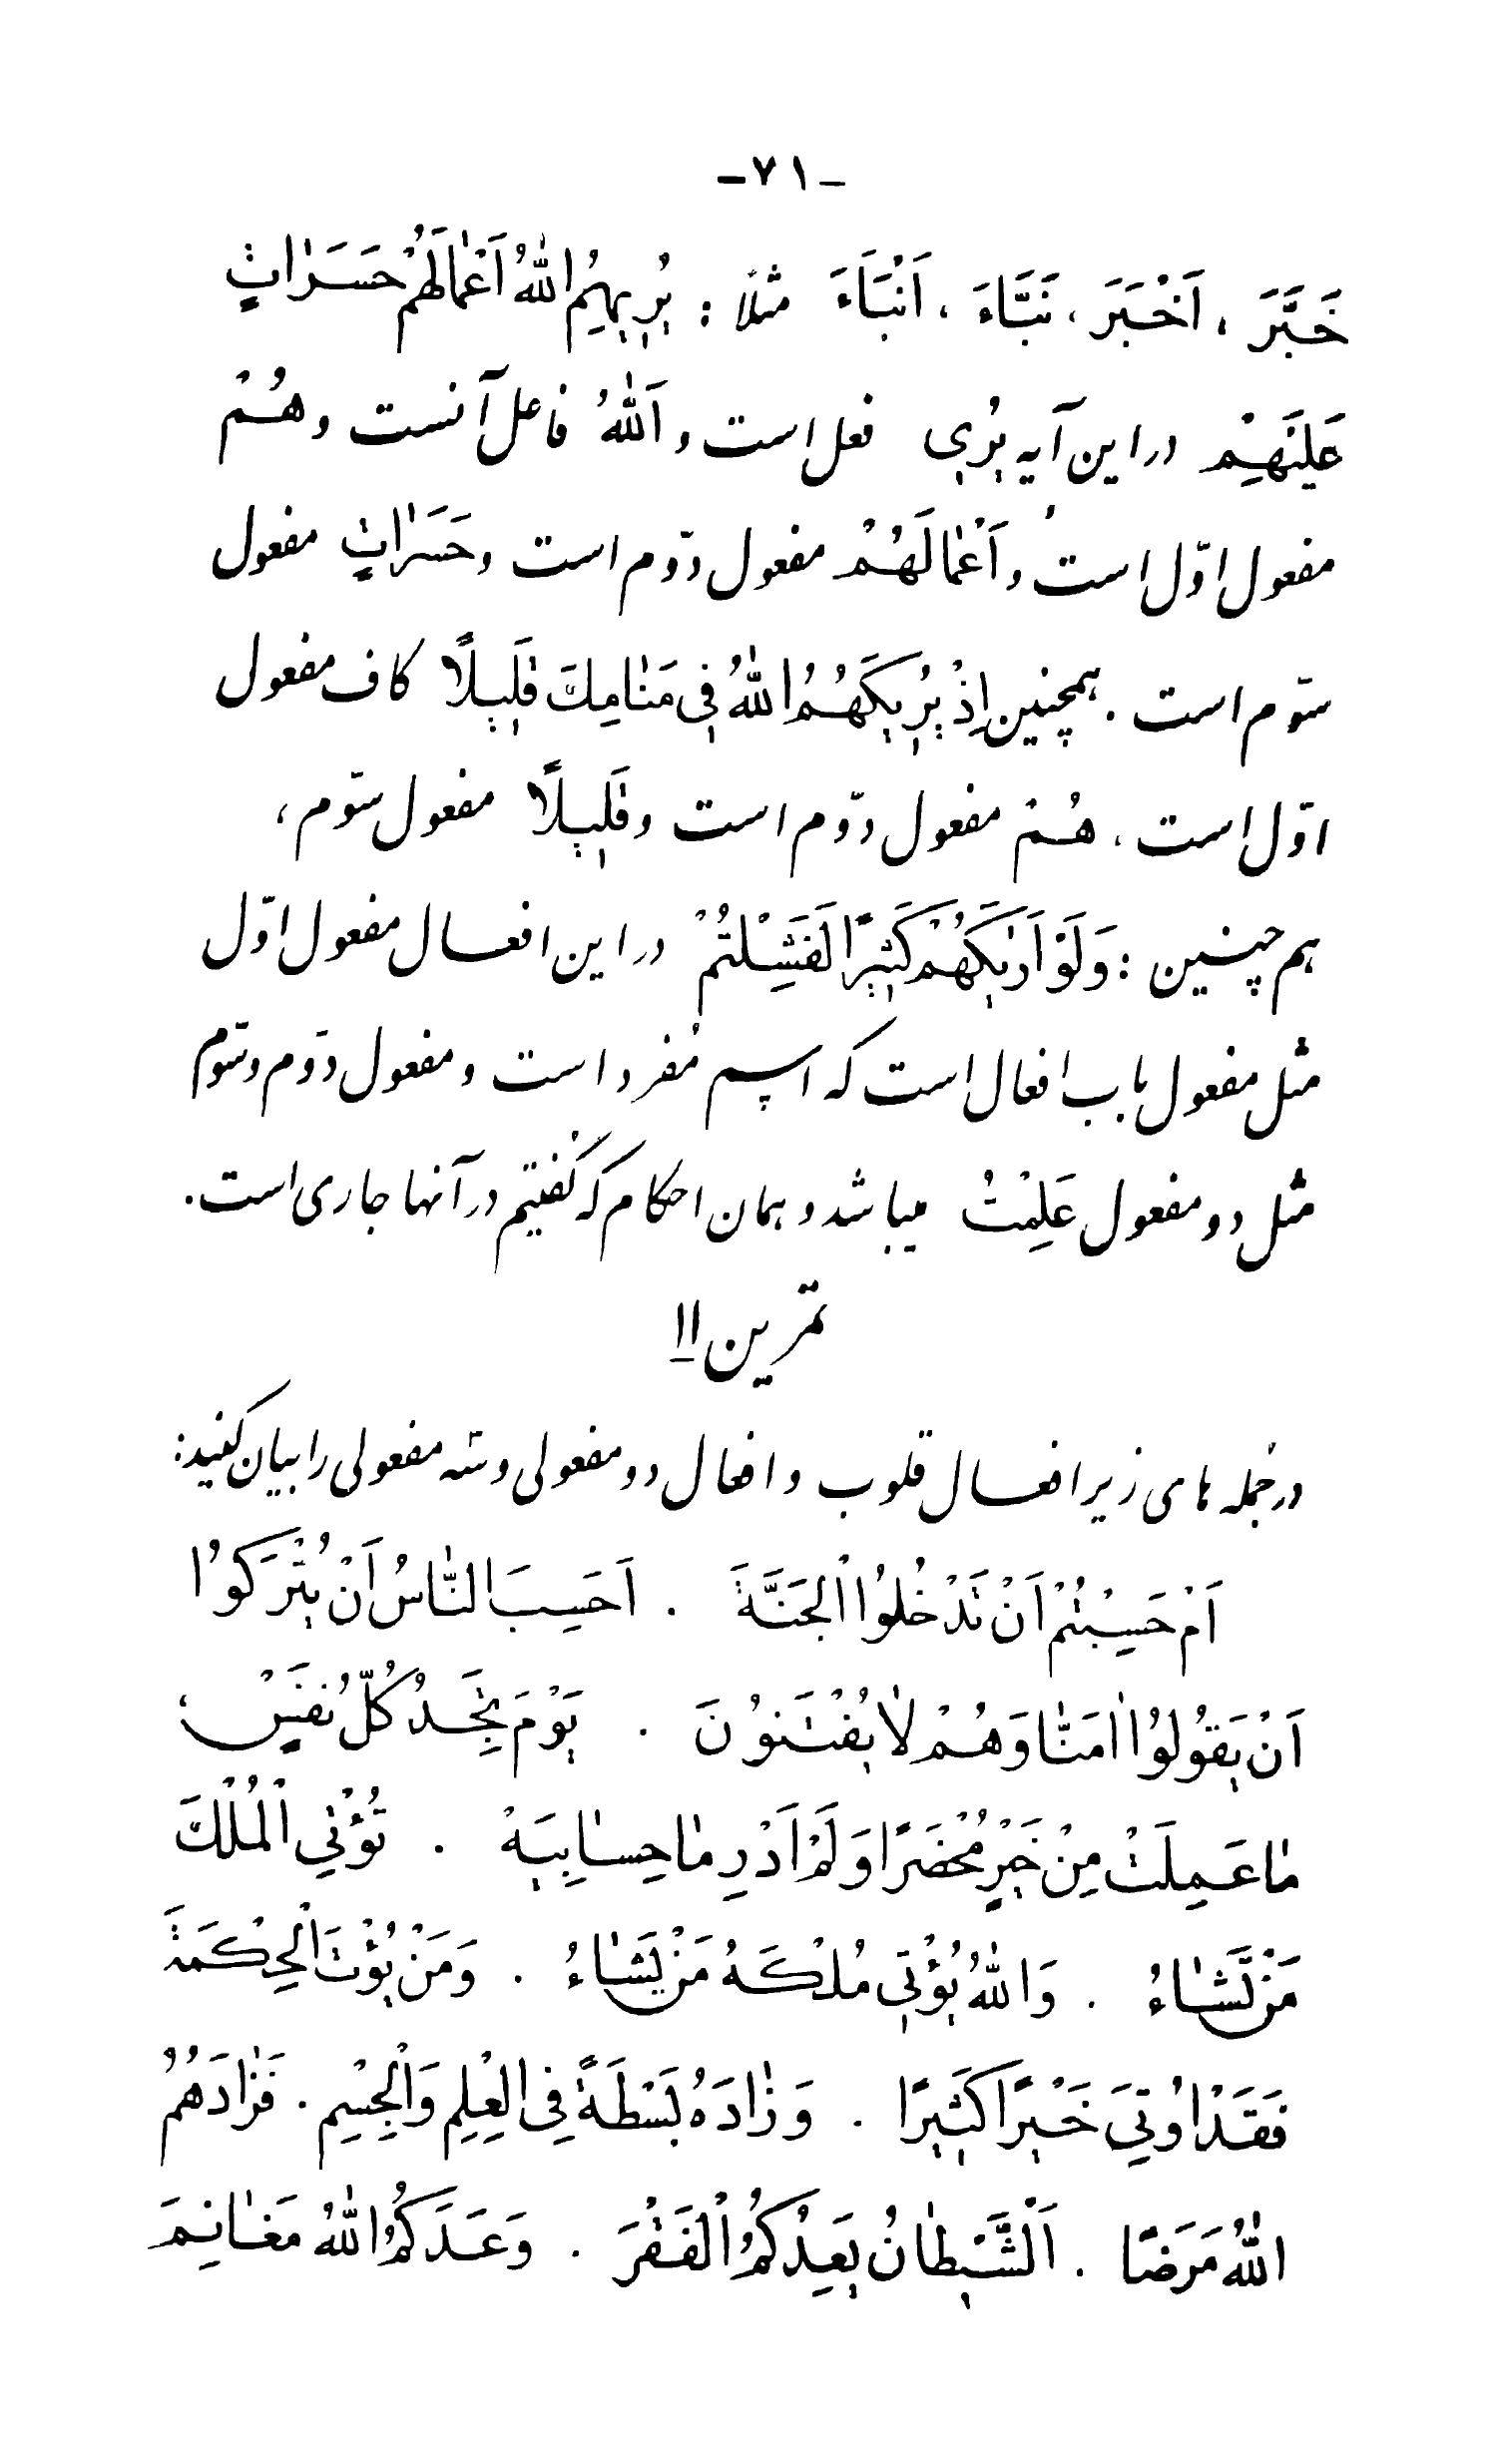 -۷۱-
خَبَّرَ ، اَخْبَرَ ، نَبَّاءَ ، اَنْبَاَءَ مثلاً : يُريهِمُ اللّٰهُ اَعْمالَهُمْ حَسَراتٍ
عَلَيْهِمْ در این آیه يُري فعل است و اَللّٰهُ فاعل آنست و هُمْ
مفعول اوّل است و اَعْمالَهُمْ مفعول دوّم است و حَسَراتٍ مفعول
سوّم است . همچنین اِذْ يُريكَهُمُ اللّٰهُ في مَنامِكَ قَليلاً کاف مفعول
اوّل است ، هُمْ مفعول دوّم است و قَليلاً مفعول سوّم ،
هم چنین : وَلَوْ اَرٰيكَهُمْ كَثيرًا لَفَشِلْتُمْ در این افعال مفعول اوّل
مثل مفعول باب افعال است که اسم مُفرد است و مفعول دوّم و سوّم
مثل دو مفعول عَلِمْتُ میباشد و همان احکام که گفتیم در آنها جاری است .
تمرین ۱۱
در جُمله های زیر افعال قلوب و افعال دو مفعولی و سه مفعولی را بیان کنید :
اَمْ حَسِبْتُمْ اَنْ تَدْخُلُوا الْجَنَّةَ . اَحَسِبَ النّاسُ اَنْ يُتْرَكُوا
اَنْ يَقُولُوا امَنّا وَهُمْ لا يُفْتَنُونَ . يَوْمَ تَجِدُ كُلُّ نَفْسٍ
ما عَمِلَتْ مِنْ خَيْرٍ مُحْضَرًا وَ لَمْ اَدْرِ ما حِسابِيَهْ . تُؤْتِي الْمُلْكَ
مَنْ تَشاءُ . وَاللّٰهُ يُؤْتي مُلْكَهُ مَنْ يَشاءُ . وَمَنْ يُؤْتَ الْحِكْمَةَ
فَقَدْ اُوتِيَ خَيْرًا كَثيرًا . وَ زادَهُ بَسْطَةً فِي الْعِلْمِ وَالْجِسْمِ . فَزادَهُمُ
اللّٰهُ مَرَضًا . اَلشَّيْطانُ يَعِدُكُمُ الْفَقْرَ . وَعَدَكُمُ اللّٰهُ مَغانِمَ